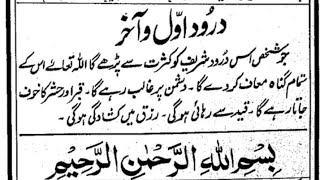 درود اوّل و آخر
جو شخص اس درود شریف کو کثرت سے پڑھے گا اللہ تعالےٰ اس کے
تمام گناہ معاف کر دے گا۔ دشمن پر غالب رہے گا۔ قبر اور حشر کا خوف
جاتا رہے گا۔ قید سے رہائی ہوگی۔ رزق میں کشادگی ہوگی۔
بِسْمِ اللهِ الرَّحْمٰنِ الرَّحِيْمِ